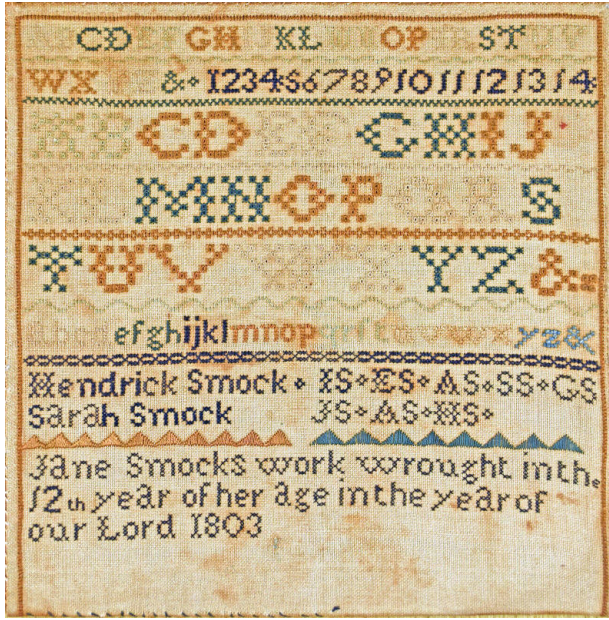 CD GH KL OP ST
WX & 1 2 3 4 5 6 7 8 9 10 11 12 13 14
CD GHIJ
MNOP S
TUV YZ &
efghijklmnop yz&
Hendrick Smock IS ES AS SS GS
Sarah Smock JS AS HS
Jane Smocks work wrought in the
12th year of her age in the year of
our Lord 1803